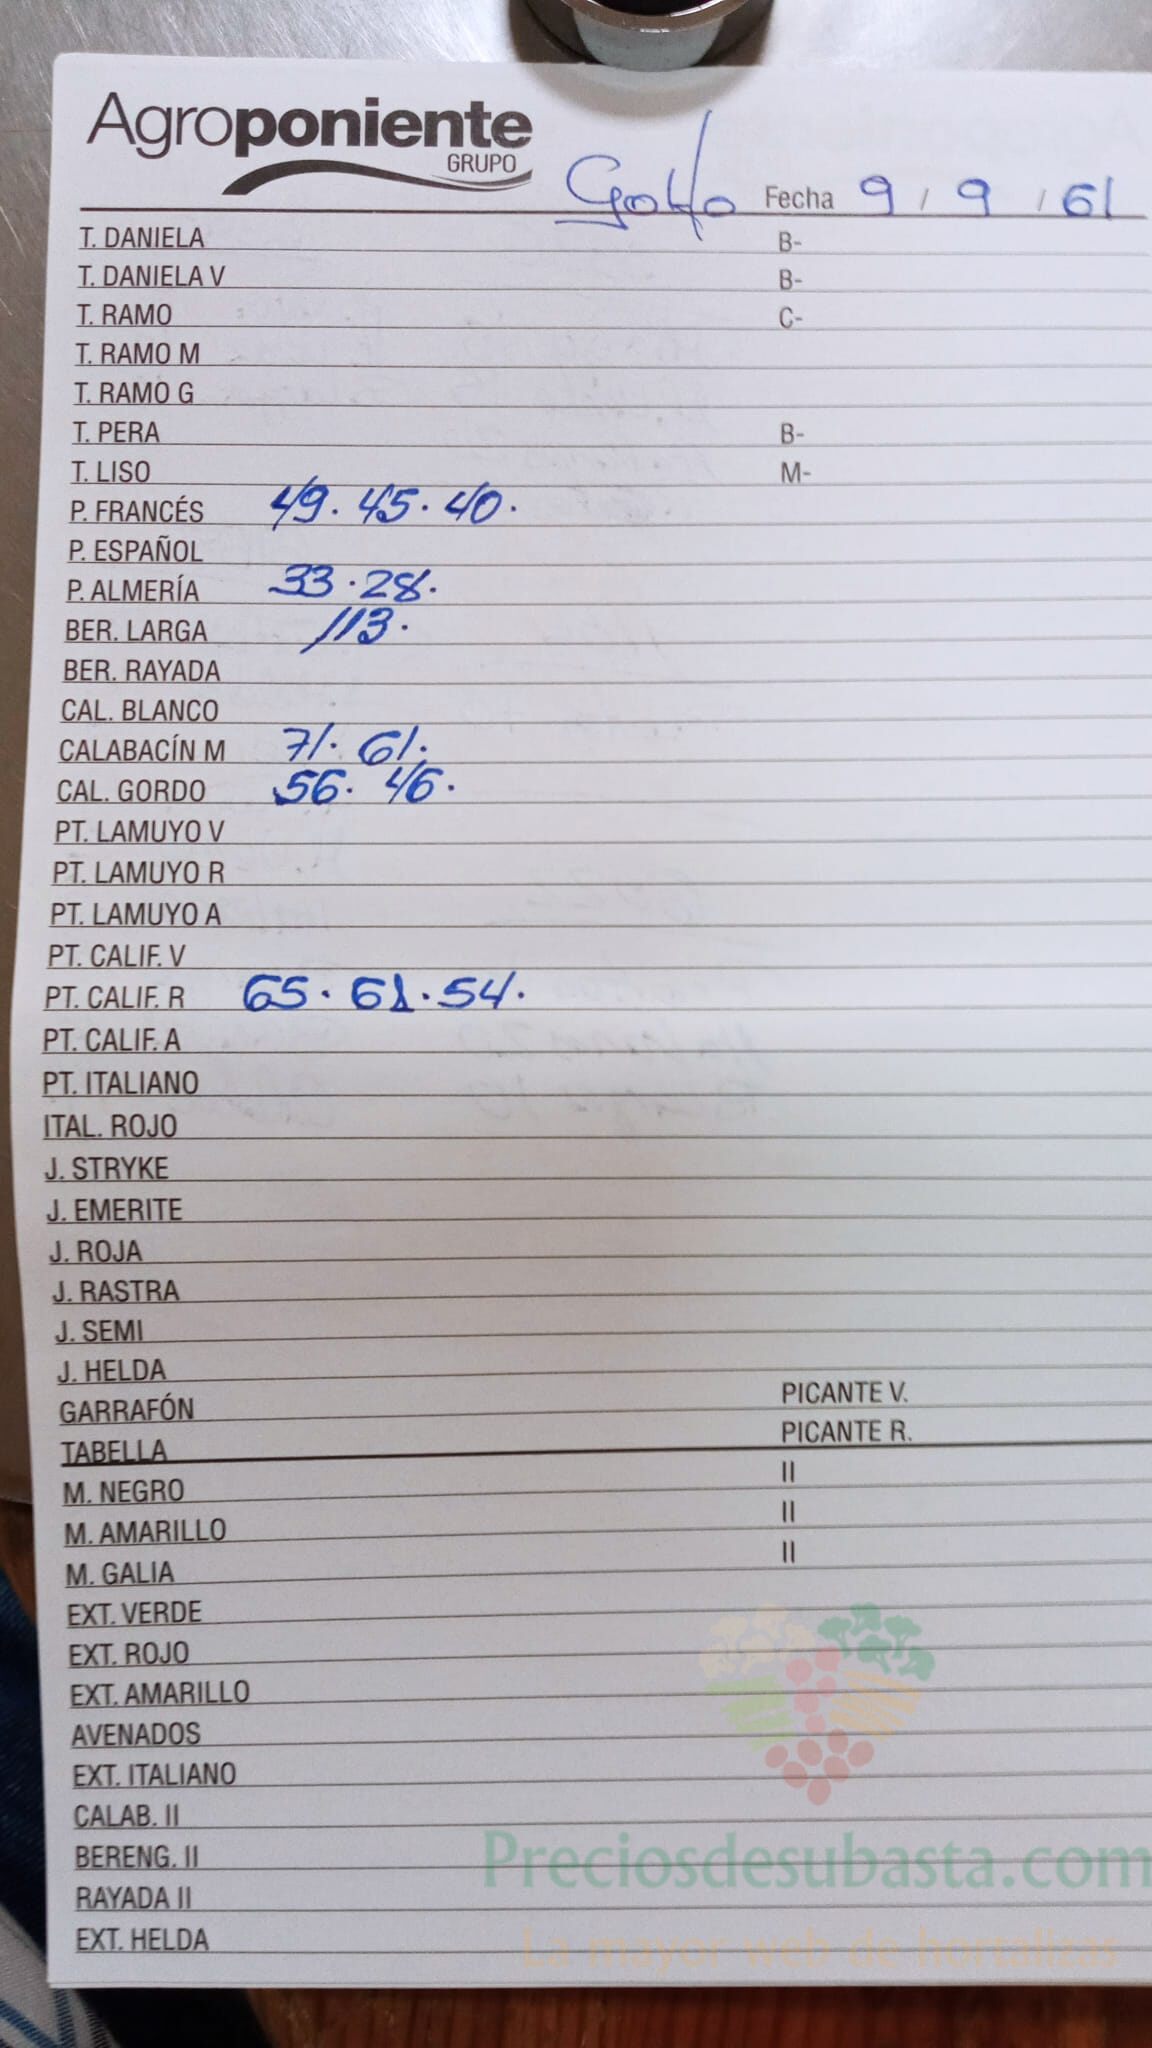 Agroponiente
GRUPO
Golfo Fecha 9 / 9 / 61
T. DANIELA B-
T. DANIELA V B-
T. RAMO C-
T. RAMO M
T. RAMO G
T. PERA B-
T. LISO M-
P. FRANCÉS 49. 45. 40.
P. ESPAÑOL
P. ALMERÍA 33. 28.
BER. LARGA 113.
BER. RAYADA
CAL. BLANCO
CALABACÍN M 71. 61.
CAL. GORDO 56. 46.
PT. LAMUYO V
PT. LAMUYO R
PT. LAMUYO A
PT. CALIF. V
PT. CALIF. R 65. 61. 54.
PT. CALIF. A
PT. ITALIANO
ITAL. ROJO
J. STRYKE
J. EMERITE
J. ROJA
J. RASTRA
J. SEMI
J. HELDA
GARRAFÓN PICANTE V.
TABELLA PICANTE R.
M. NEGRO II
M. AMARILLO II
M. GALIA II
EXT. VERDE
EXT. ROJO
EXT. AMARILLO
AVENADOS
EXT. ITALIANO
CALAB. II
BERENG. II
RAYADA II
EXT. HELDA
Preciosdesubasta.com
La mayor web de hortalizas